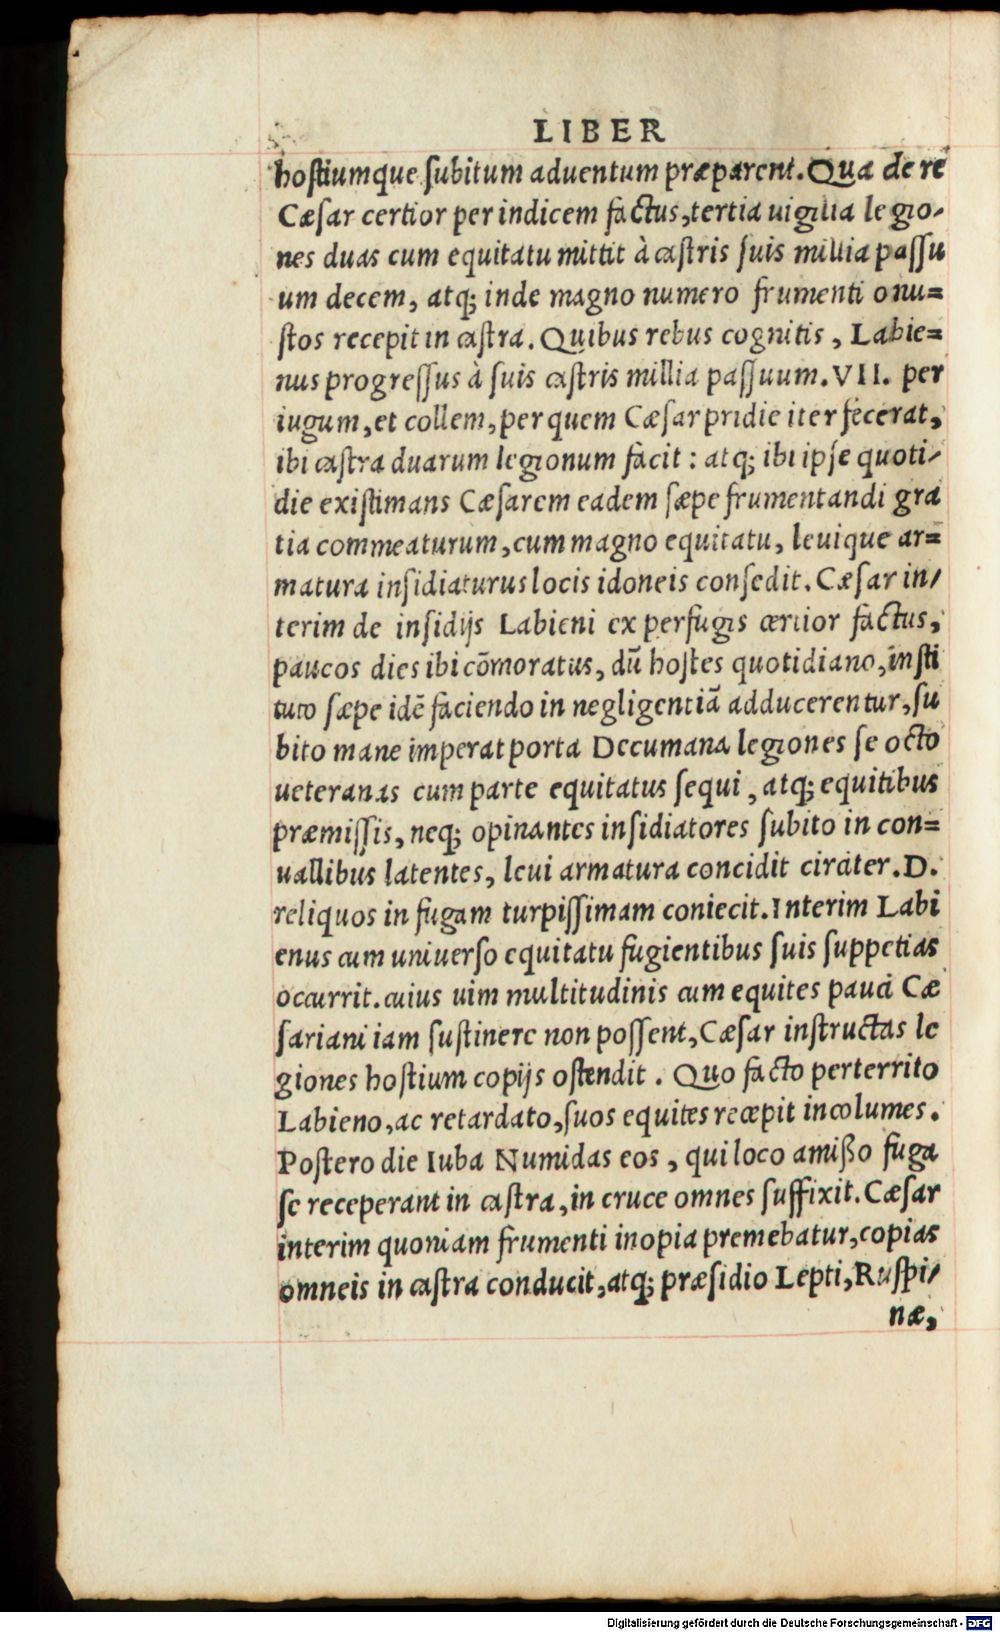 LIBER
hostiumque subitum aduentum præparent. Qua de re
Cæsar certior per indicem factus, tertia uigilia legio-
nes duas cum equitatu mittit à castris suis millia passu
um decem, atq; inde magno numero frumenti onu=
stos recepit in castra. Quibus rebus cognitis, Labie=
nus progressus à suis castris millia passuum. VII. per
iugum, et collem, per quem Cæsar pridie iter fecerat,
ibi castra duarum legionum facit: atq; ibi ipse quoti-
die existimans Cæsarem eadem sæpe frumentandi gra
tia commeaturum, cum magno equitatu, leuique ar=
matura insidiaturus locis idoneis consedit. Cæsar in-
terim de insidijs Labieni ex perfugis certior factus,
paucos dies ibi cōmoratus, dū hostes quotidiano, insti
tuto sæpe idē faciendo in negligentiā adducerentur, su
bito mane imperat porta Decumana legiones se octo
ueteranas cum parte equitatus sequi, atq; equitibus
præmissis, neq; opinantes insidiatores subito in con=
uallibus latentes, leui armatura concidit circiter. D.
reliquos in fugam turpissimam coniecit. Interim Labi
enus cum uniuerso equitatu fugientibus suis suppetias
occurrit. cuius uim multitudinis cum equites pauci Cæ
sariani iam sustinere non possent, Cæsar instructas le
giones hostium copijs ostendit. Quo facto perterrito
Labieno, ac retardato, suos equites recepit incolumes.
Postero die Iuba Numidas eos, qui loco amißo fuga
se receperant in castra, in cruce omnes suffixit. Cæsar
interim quoniam frumenti inopia premebatur, copias
omneis in castra conducit, atq; præsidio Lepti, Ruspi-
næ,
Digitalisierung gefördert durch die Deutsche Forschungsgemeinschaft - DFG